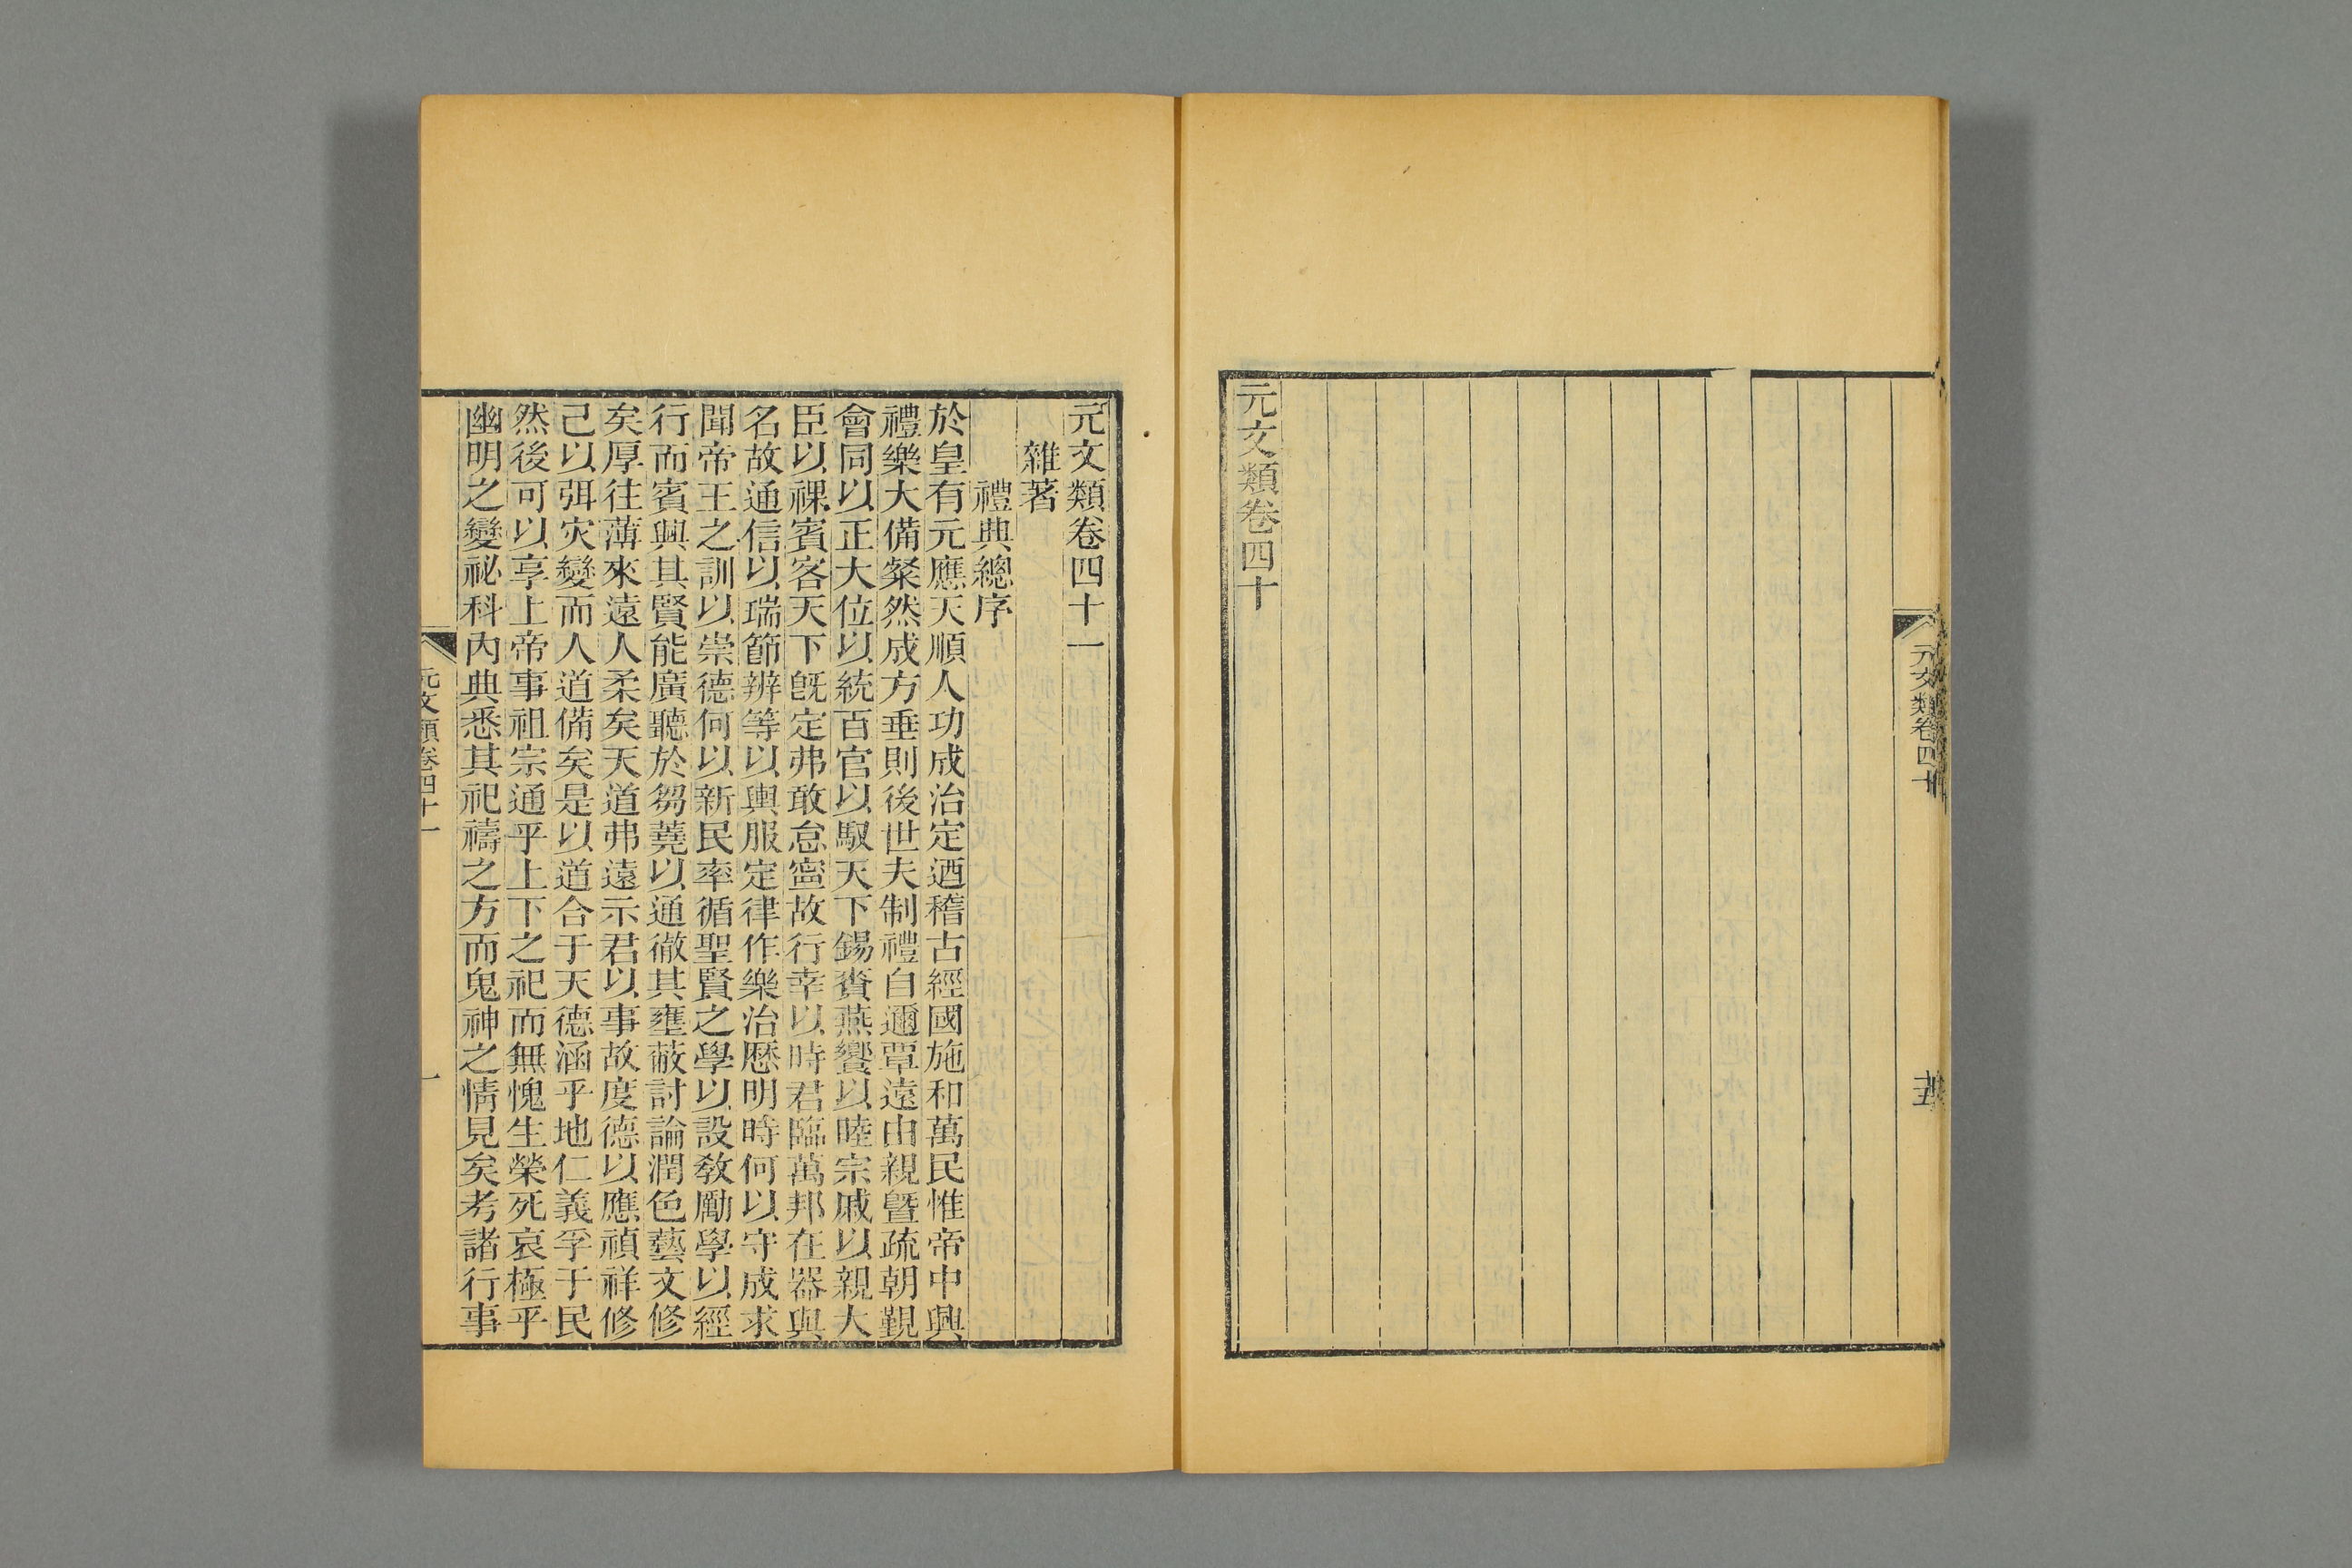 元文類卷四十
元文類卷四十
元文類卷四十一
雜著
禮典總序
於皇有元應天順人功成治定迺稽古經國施和萬民惟帝中興
禮樂大備粲然成方垂則後世夫制禮自邇覃遠由親曁疏朝覲
會同以正大位以統百官以馭天下錫賚燕饗以睦宗戚以親大
臣以祼賓客天下旣定弗敢怠寍故行幸以時君臨萬邦在器與
名故通信以瑞節辨等以輿服定律作樂治厯明時何以守成求
聞帝王之訓以崇德何以新民率循聖賢之學以設敎勵學以經
行而賓興其賢能廣聽於芻蕘以通徹其壅蔽討論潤色藝文修
矣厚往薄來遠人柔矣天道弗遠示君以事故度德以應禎祥修
己以弭灾變而人道備矣是以道合于天德涵乎地仁義孚于民
然後可以享上帝事祖宗通乎上下之祀而無愧生榮死哀極乎
幽明之變祕科內典悉其祀禱之方而鬼神之情見矣考諸行事
元文類卷四十一
一